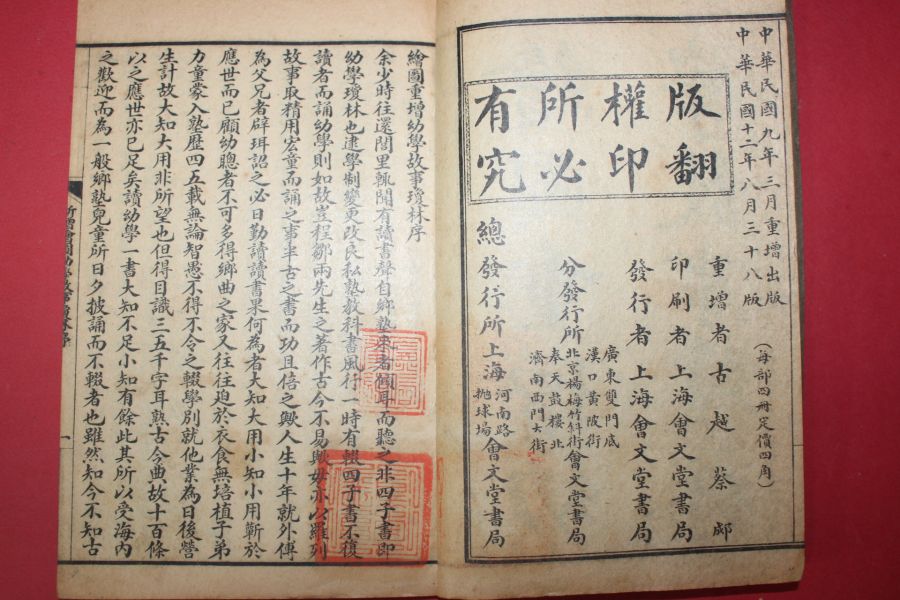 中華民國九年三月重增出版
中華民國十二年八月三十八版
版權所有
翻印必究
(每部四冊定價四角)
重增者古越蔡郕
印刷者上海會文堂書局
發行者上海會文堂書局
分發行所
廣東雙門底
漢口黃陂街
北京楊梅竹斜街
奉天鼓樓北
濟南西門大街
會文堂書局
總發行所上海
河南路
拋球場
會文堂書局
繪圖重增幼學故事瓊林序
余少時往還閭里輒聞有讀書聲自鄉塾來者傾耳而聽之非四子書即
幼學瓊林也逮學制變更改良私塾教科書風行一時有輟四子書不復
讀者而誦幼學則如故豈程鄒兩先生之著作古今不易歟毋亦以羅列
故事取精用宏童而誦之事半古之書而功且倍之歟人生十年就外傅
為父兄者辟珥詔之必曰勤讀讀書果何為者大知大用小知小用蘄於
應世而已顧幼聰者不可多得鄉曲之家又往往迫於衣食無培植子弟
力童蒙入塾歷四五載無論智愚不得不令之輟學別就他業為日後營
生計故大知大用非所望也但得目識三五千字耳熟古今典故十百條
以之應世亦已足矣讀幼學一書大知不足小知有餘此其所以受海內
之歡迎而為一般鄉塾兒童所日夕披誦而不輟者也雖然知今不知古
一